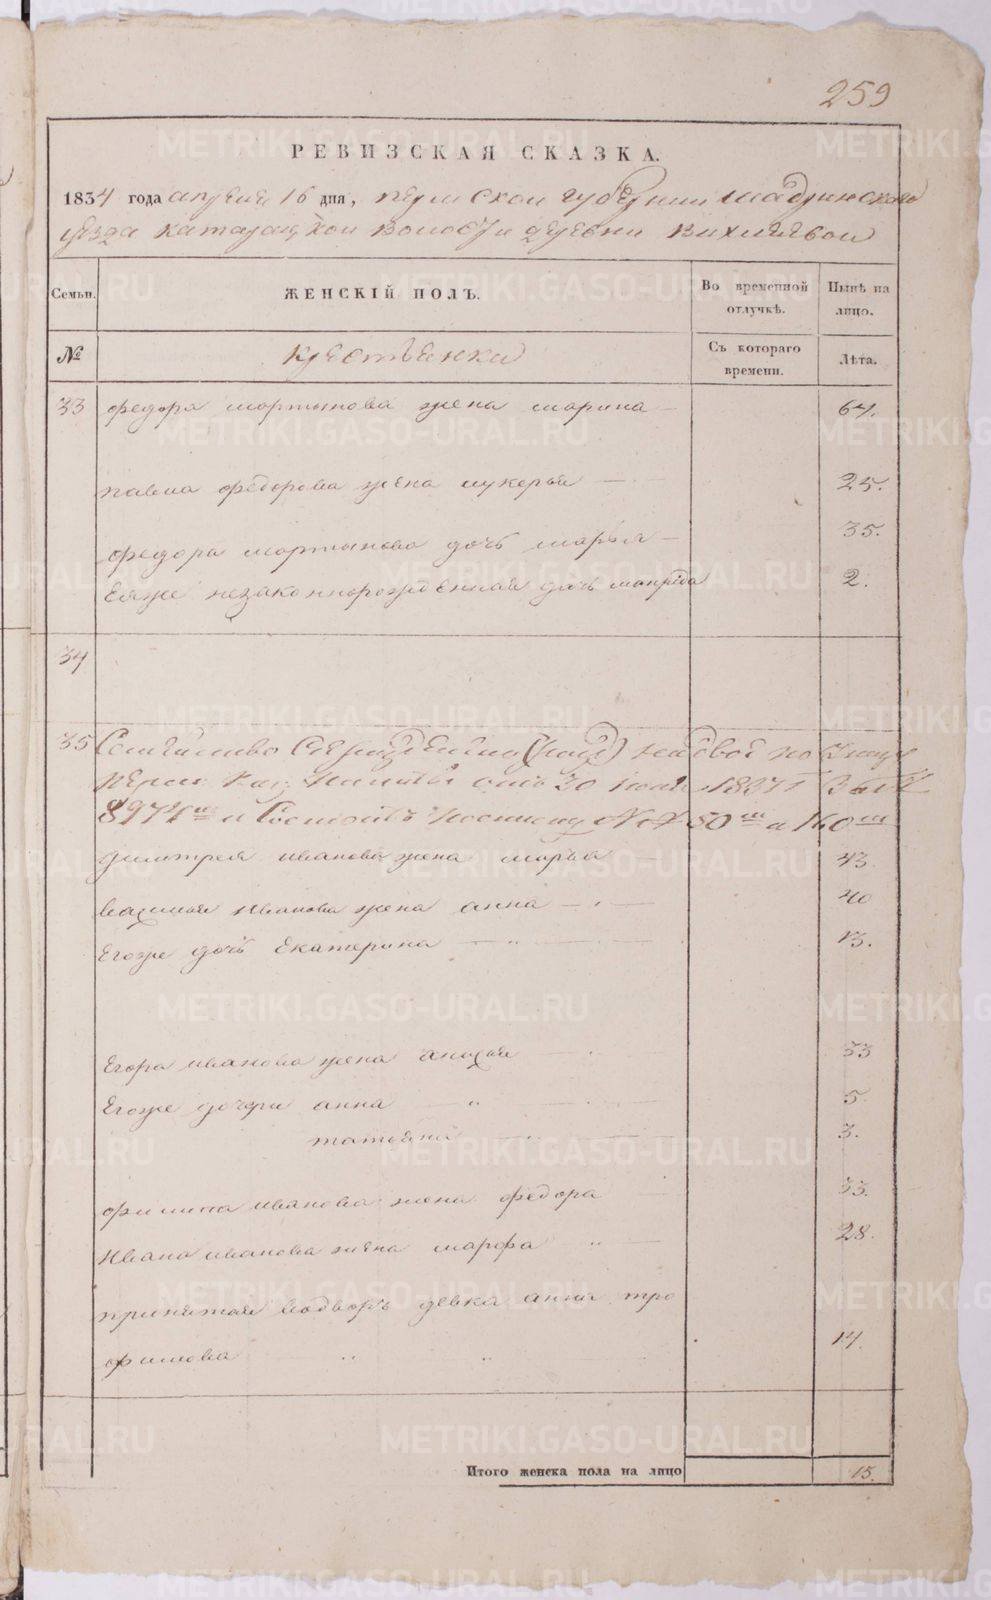 259
РЕВИЗСКАЯ СКАЗКА.
1834 года апреля 16 дня, пермской губернии шадринскаго
уезда катайской волости деревни вихляевой
Семьи. ЖЕНСКІЙ ПОЛЪ. Во временной отлучкѣ. Нынѣ на лицо.
№ крестьянки Съ котораго времени. Лѣта.
33 федора мартынова жена марина 64.
павла федорова жена лукерья 25.
федора мартынова дочь марья 35.
Еяже незаконнорожденная дочь 2.
34
35 Семейство
от 30 1837
8974 № 50 и 160
димитрея иванова жена марья 43.
василья иванова жена анна 40
Егоже дочь Екатерина 13.
Егора иванова жена 33
Егоже дочери анна 5.
татьяна 3.
филипа иванова жена федора 33.
Ивана иванова жена марфа 28.
принятая водворъ девка анна тро
фимова 14.
Итого женска пола на лицо 15.
METRIKI.GASO-URAL.RU